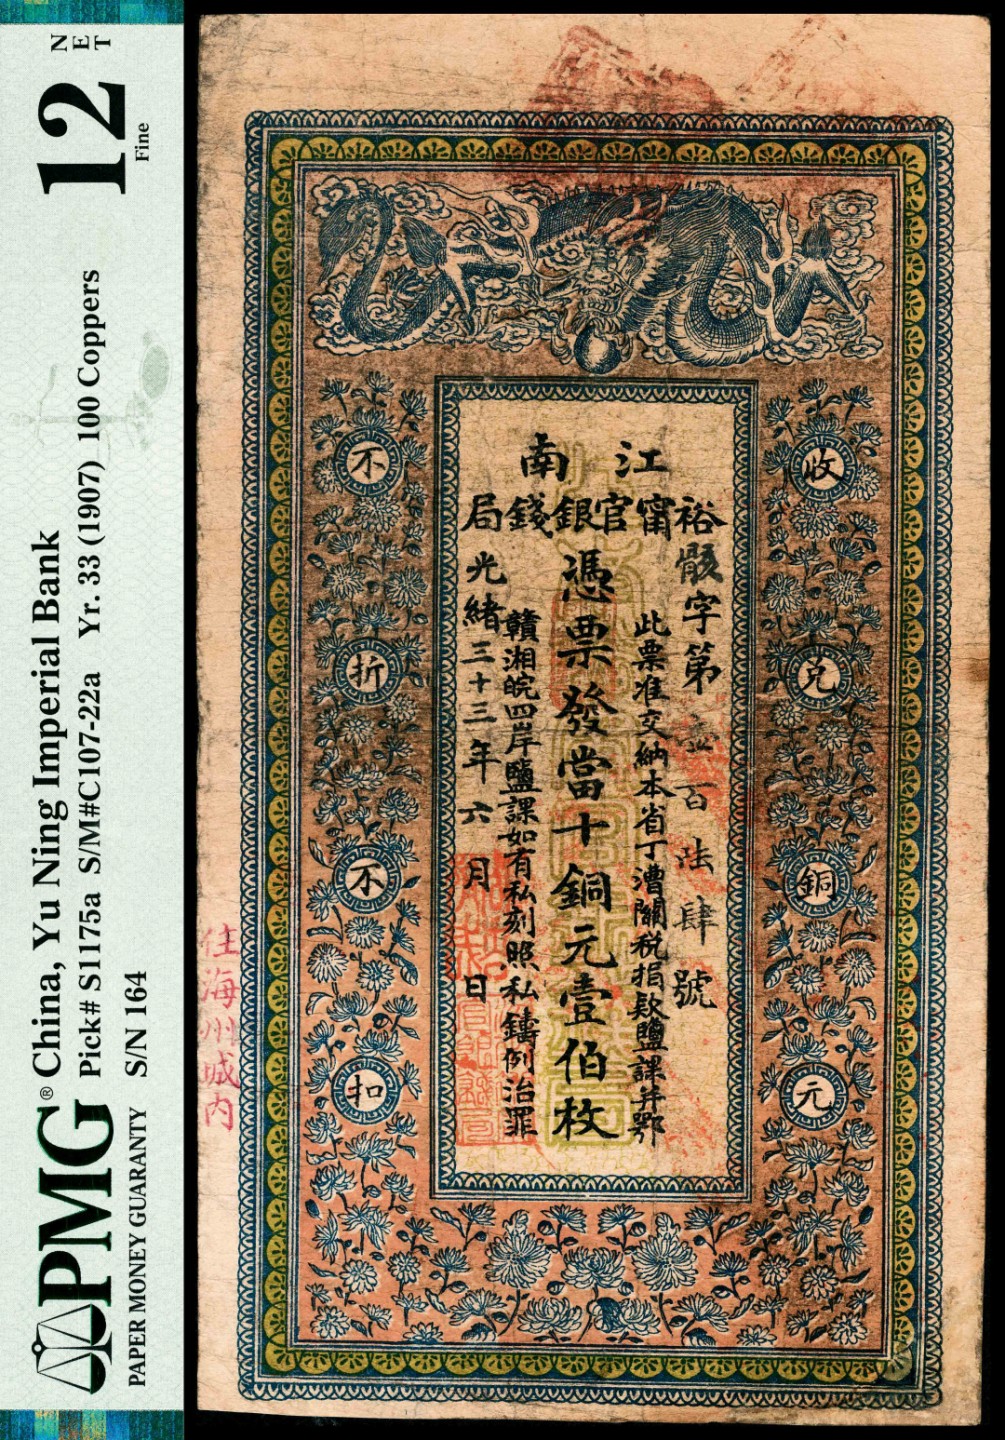 PMG®
PAPER MONEY GUARANTY
China, Yu Ning Imperial Bank
Pick# S1175a S/M#C107-22a Yr. 33 (1907) 100 Coppers
S/N 164
12
Fine
NET
江南
裕甯官銀錢局
字第壹百陸肆號
此票准交納本省丁漕關稅捐款鹽課并鄂
憑票發當十銅元壹伯枚
贛湘皖四岸鹽課如有私刻照私鑄例治罪
光緒三十三年六月日
收兌銅元
不折不扣
住海州城內